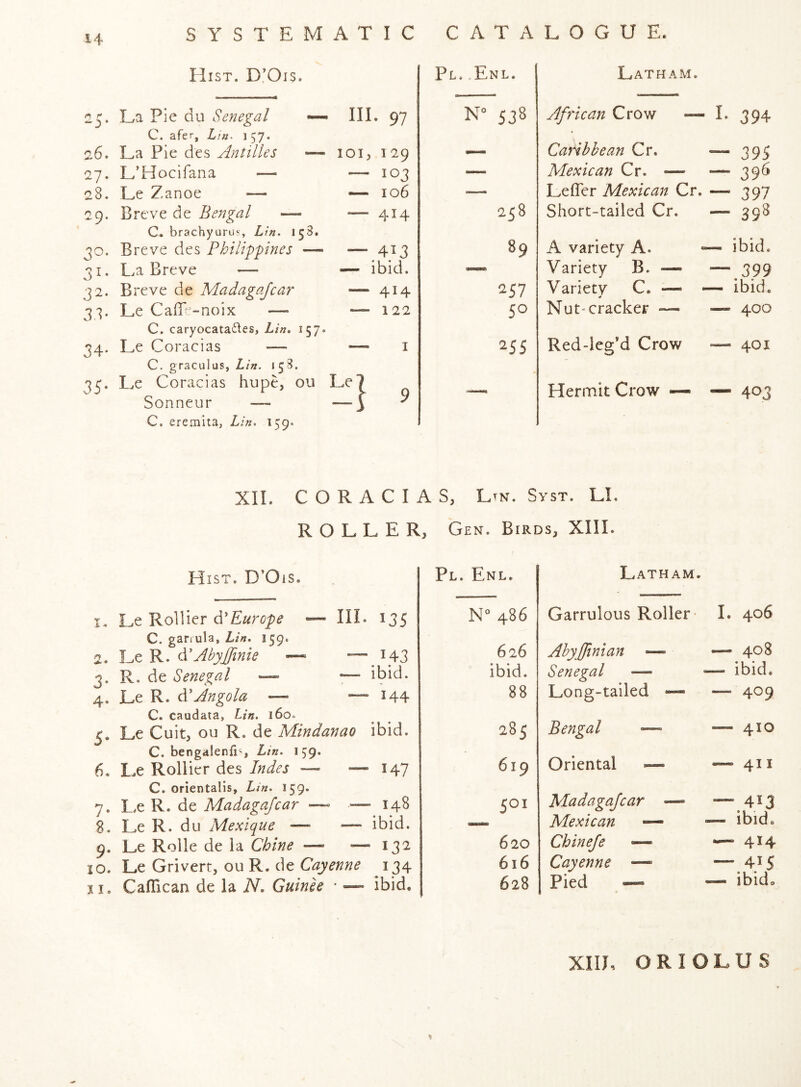 14
SYSTEMATIC CATALOGUE.
Hist. D'Ois. Pl. Enl. Latham.
25. La Pie du Senegal — III. 97 N° 538 African Crow — I. 394
C. afer, Lin. 157.
26. La Pie des Antilles — 101, 129 — Caribbean Cr. — 395
27. L'Hocifana — — 103 — Mexican Cr. — — 396
28. Le Zanoe — — 106 — Leſſer Mexican Cr. — 397
29. Breve de Bengal — — 414 258 Short-tailed Cr. — 398
C. brachyurus, Lin. 158.
30. Breve des Philippines — — 413 89 A variety A. — ibid.
31. La Breve — — ibid. — Variety B. — — 399
32. Breve de Madagaſcar — 414 257 Variety C. — — ibid.
33. Le Caſſe-noix — — 122 50 Nut-cracker — — 400
C. caryocatactes, Lin. 157.
34. Le Coracias — — 1 255 Red-leg'd Crow — 401
C. graculus, Lin. 158.
35. Le Coracias hupè, ou Le } 9 — Hermit Crow — — 403
Sonneur — —
C. eremita, Lin. 159.
XII. CORACIAS, Lin. Syst. LI.
ROLLER, Gen. Birds, XIII.
Hist. D'Ois. Pl. Enl. Latham.
1. Le Rollier d'Europe — III. 135 N° 486 Garrulous Roller I. 406
C. garrula, Lin. 159.
2. Le R. d'Abyſſinie — — 143 626 Abyſſinian — — 408
3. R. de Senegal — — ibid. ibid. Senegal — — ibid.
4. Le R. d'Angola — — 144 88 Long-tailed — — 409
C. caudata, Lin. 160.
5. Le Cuit, ou R. de Mindanao ibid. 285 Bengal — — 410
C. bengalenſis, Lin. 159.
6. Le Rollier des Indes — — 147 619 Oriental — — 411
C. orientalis, Lin. 159.
7. Le R. de Madagaſcar — — 148 501 Madagaſcar — — 413
8. Le R. du Mexique — — ibid. — Mexican — — ibid.
9. Le Rolle de la Chine — — 132 620 Chineſe — — 414
10. Le Grivert, ou R. de Cayenne 134 616 Cayenne — — 415
11. Caſſican de la N. Guinèe — ibid. 628 Pied — — ibid.
XIII. ORIOLUS